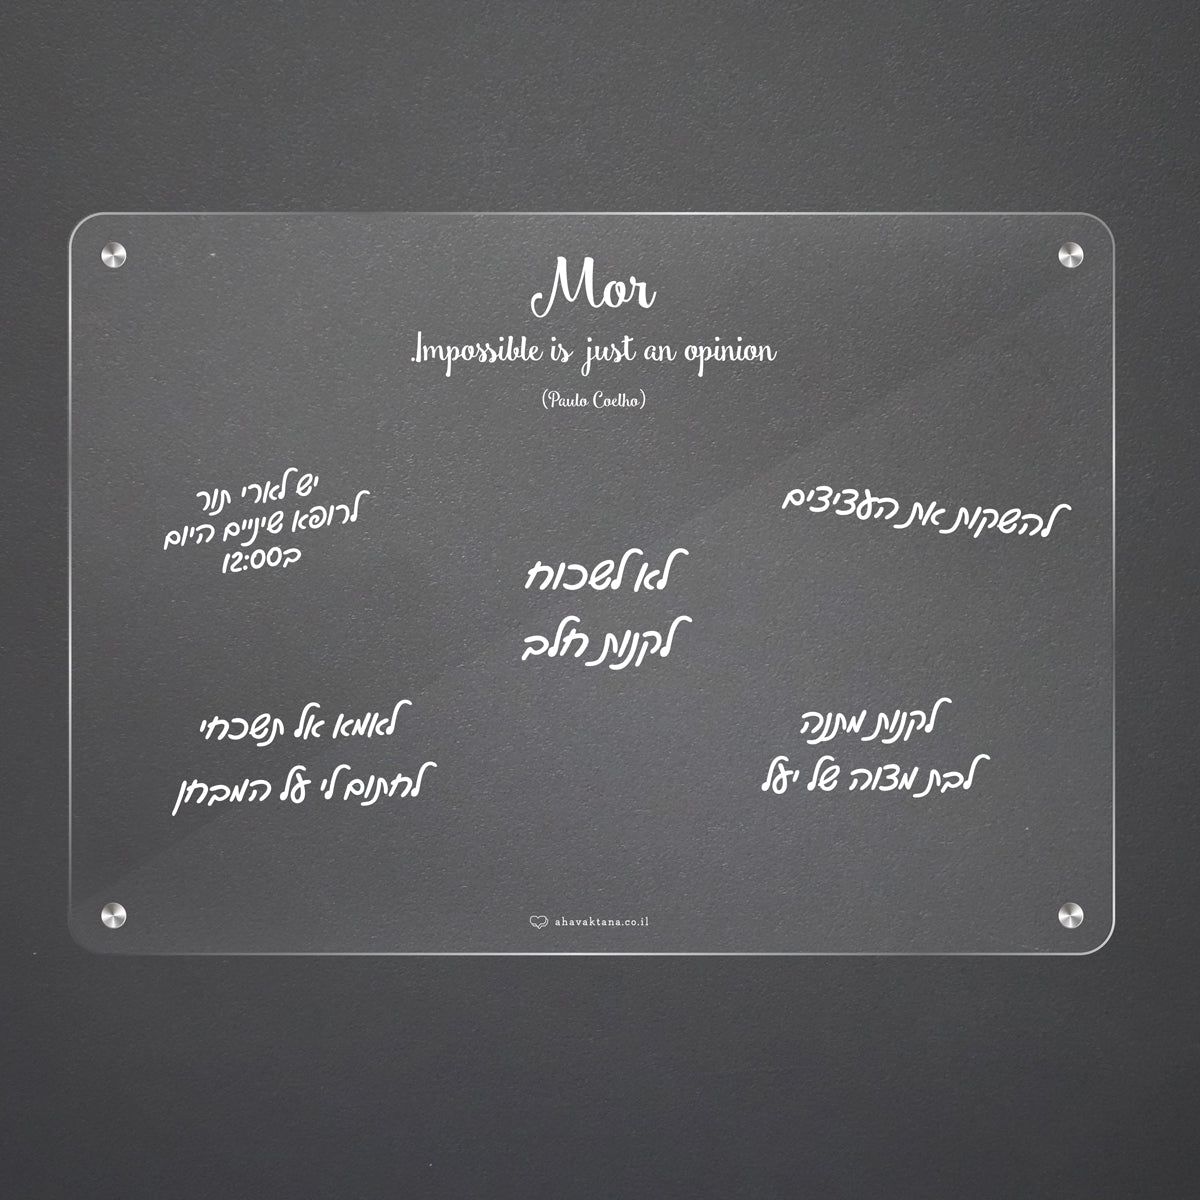 Mor
.Impossible is just an opinion
(Paulo Coelho)
להשקות את העציצים
יש לארי תור
לרופא שיניים היום
ב12:00
לא לשכוח
לקנות חלב
לקנות מתנה
לבת מצווה של יעל
לאמא אל תשכחי
לחתום לי על המבחן
ahavaktana.co.il